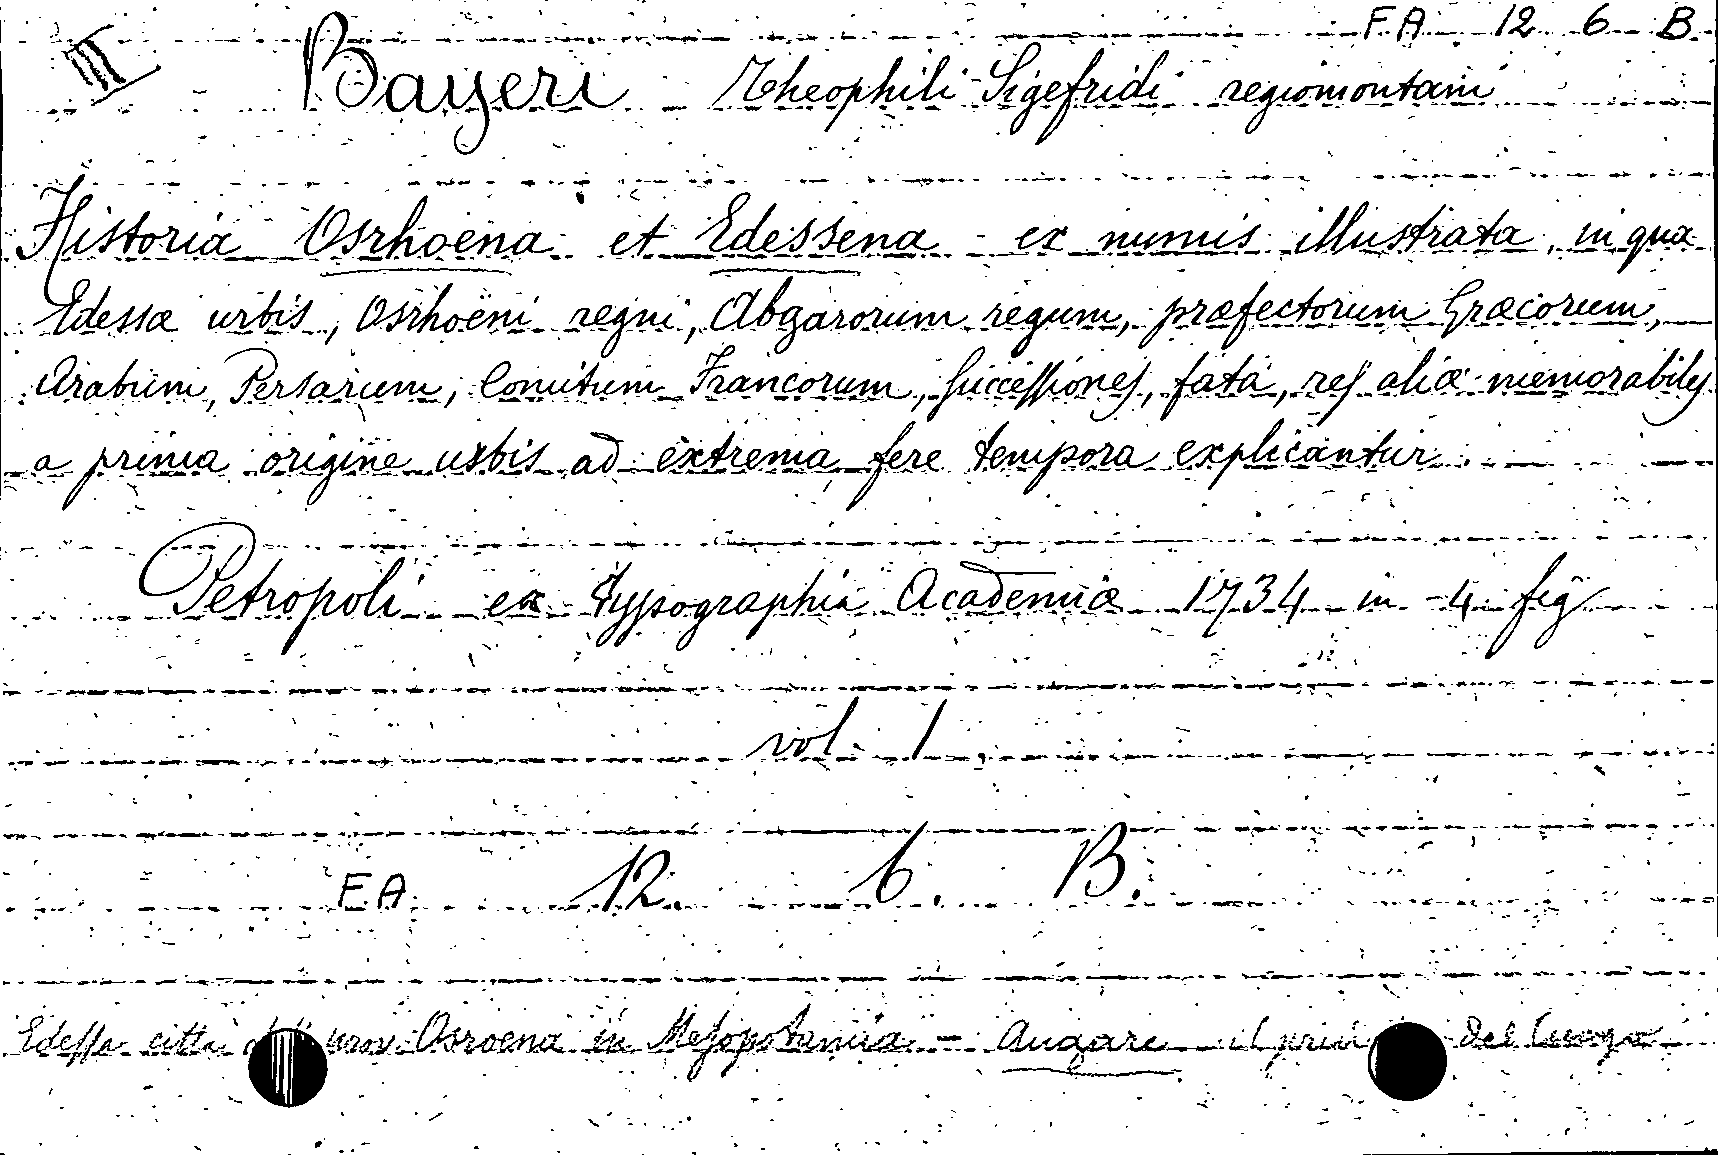 FA 12 6 B
III Bayeri - Theophili Sigefridi regiomontani
Historia Osrhoëna et Edessena ex numis illustrata, in qua
Edessæ urbis, Osrhoëni regni, Abgarorum regum, præfectorum Græcorum,
Arabum, Persarum, Comitum Francorum, successiones, fata, res aliæ memorabiles
a prima origine urbis ad extrema fere tempora explicantur
Petropoli ex Typographia Academiæ 1734 in 4 fig
vol. 1
FA 12. 6. B.
Edessa città prov. Osroena in Mesopotamia - Augare il del luogo